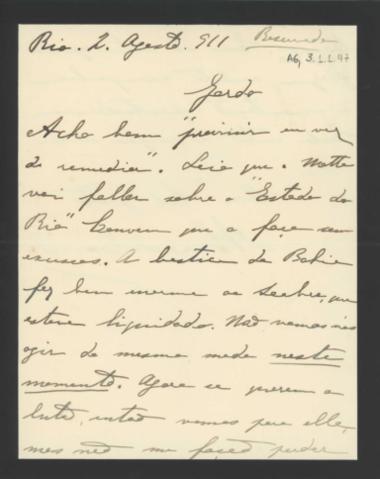 Rio. 2. Agosto. 911
Reservada
A6, 3.1.1.47
Gordo
Acho bem "previnir em vez
de remediar". Leio que o Motta
vai fallar sobre o "Estado do
Rio" Convem que o faça sem
excessos. A da Bahia
fez bem enorme ao Seabra, que
estava liquidado. Não vamos nós
agir do mesmo modo neste
momento. Agora se querem a
lucta, então vamos para ella,
mas não me façam perder